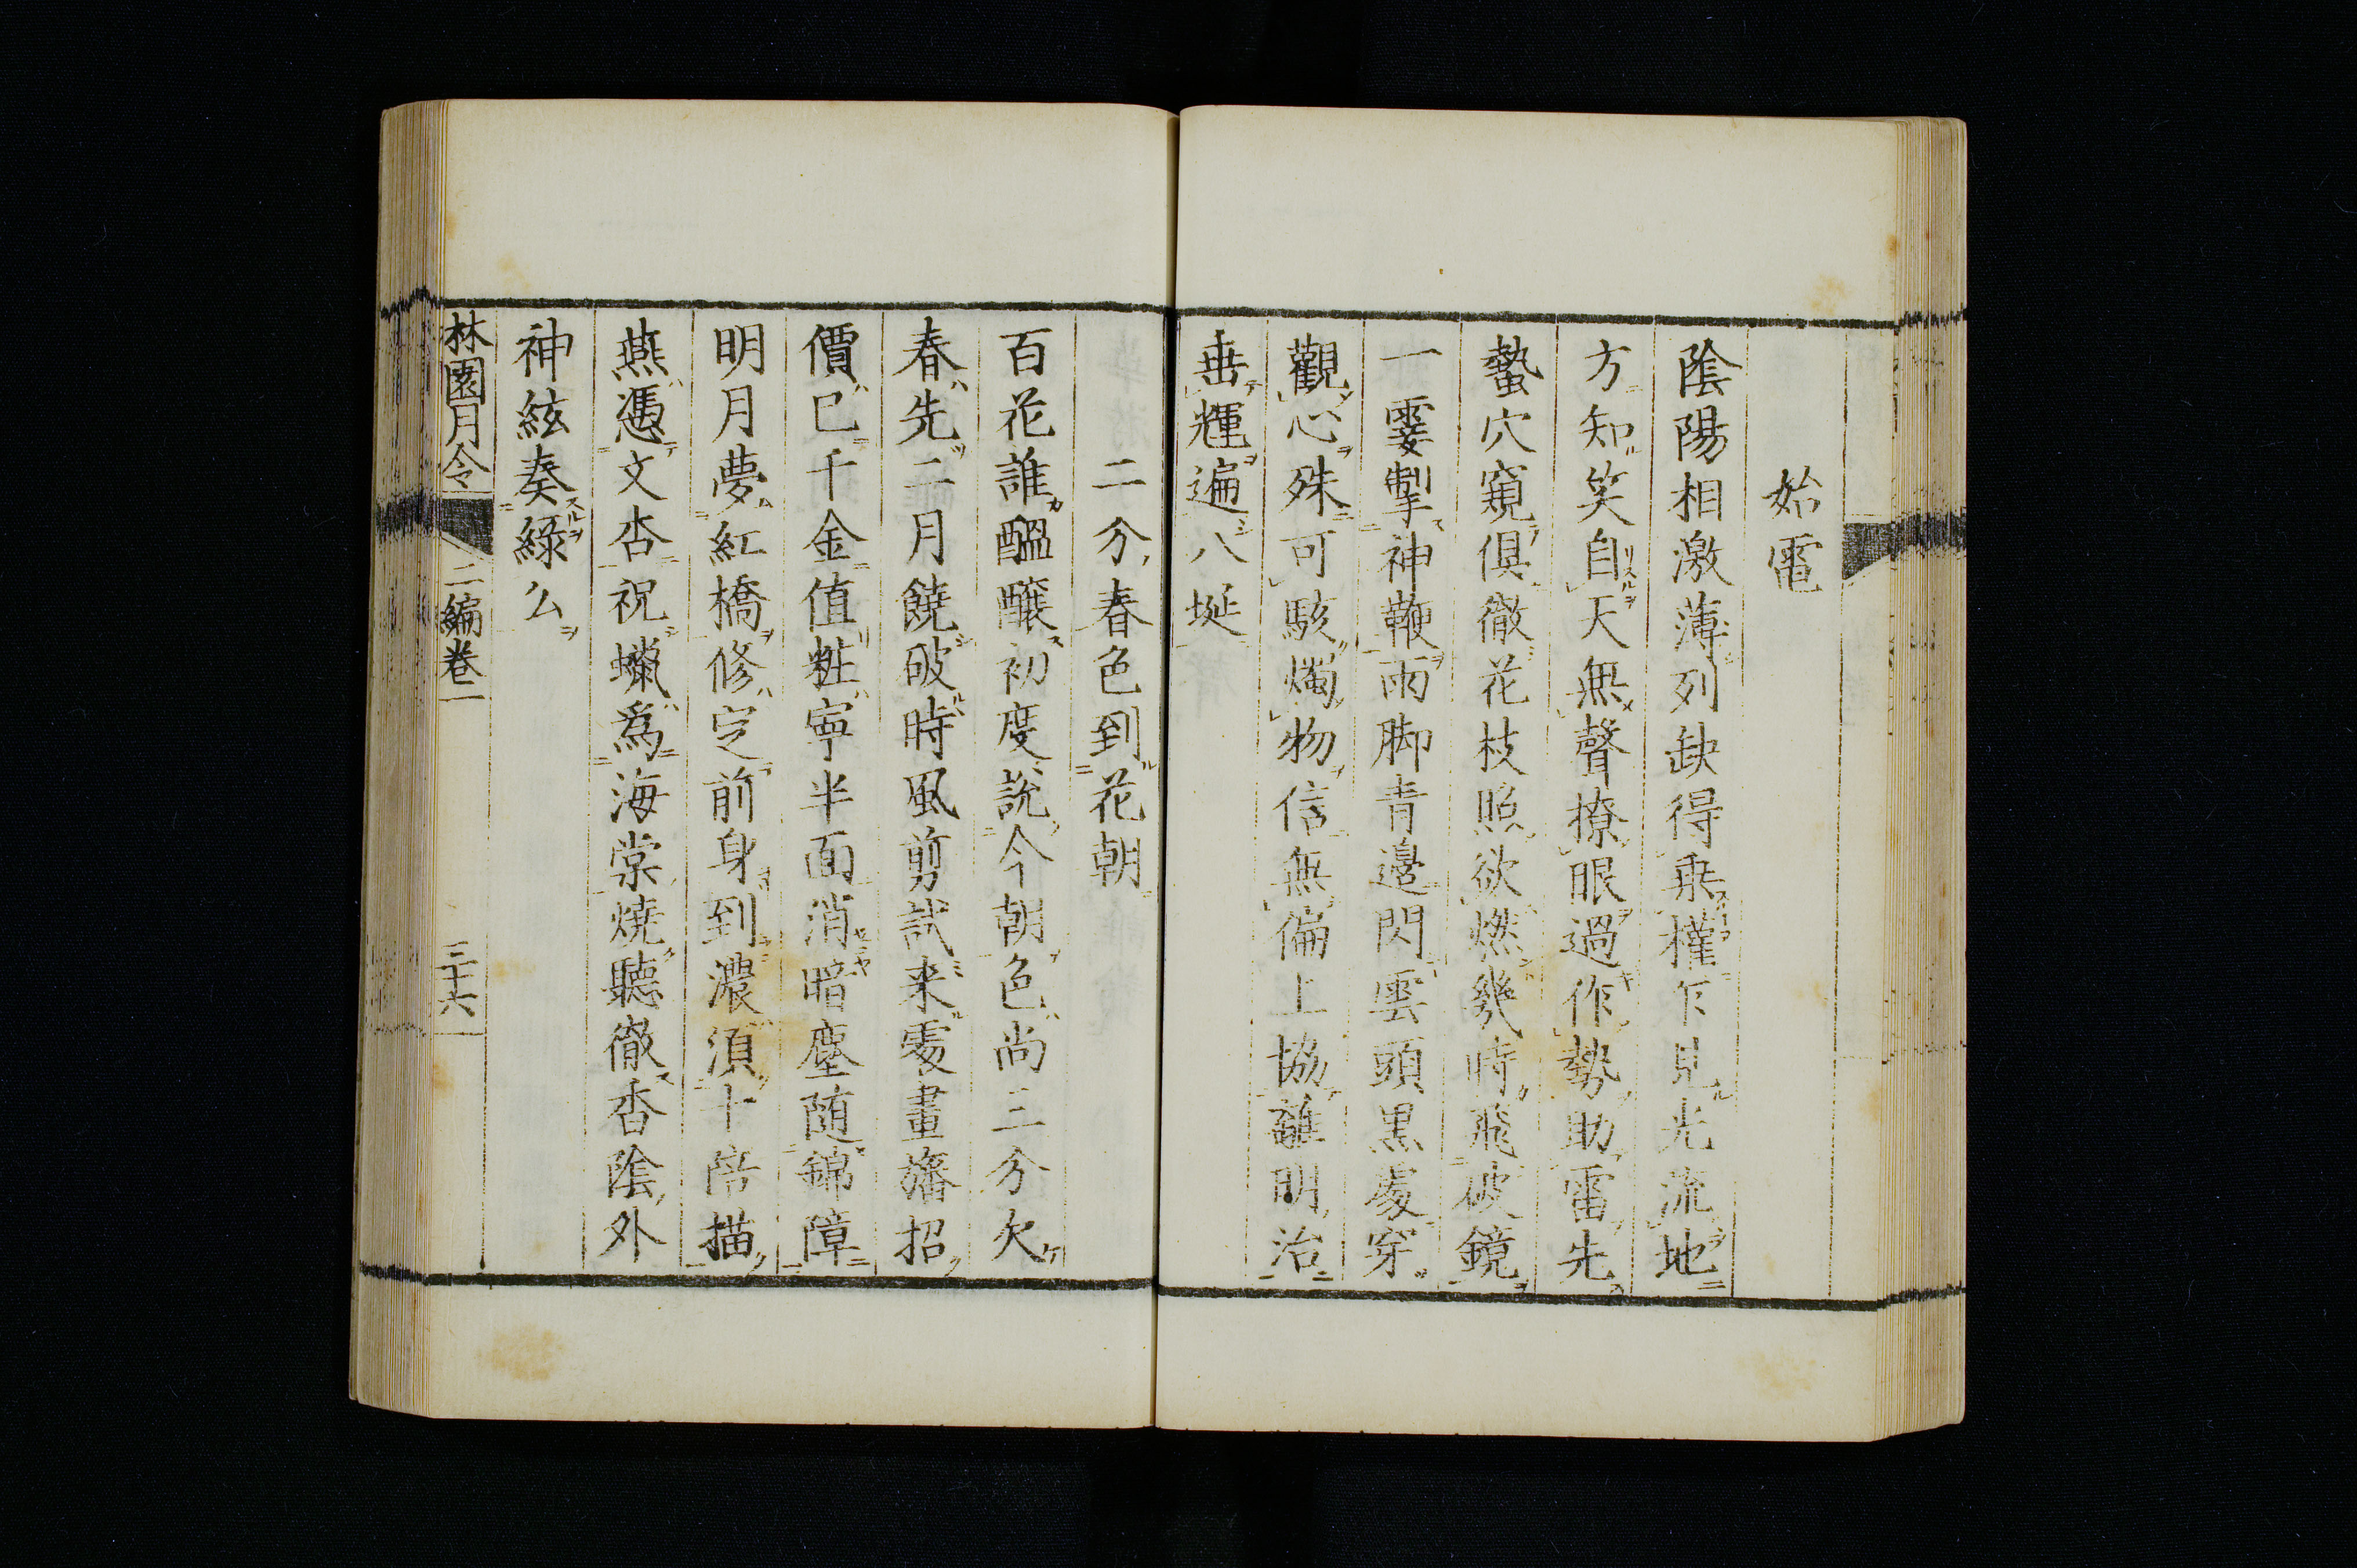 始電
陰陽相激薄列缺得乗權乍見光流地
方知笑自天無聲撩眼過作勢助雷先
蟄穴窺俱徹花枝照欲燃幾時飛破鏡
一霎掣神鞭雨脚青邉閃雲頭黒處穿
觀心殊可駭燭物信無偏上協離明治
垂輝遍八埏
二分春色到花朝
百花誰醞釀初度説今朝色尚三分欠
春先二月饒破時風剪試来處畫旛招
價已千金值粧寧半面消暗塵随錦障
明月夢紅橋修定前身到濃須十倍描
燕憑文杏祝蠟為海棠焼聽徹香陰外
神絃奏緑么
林園月令 二編巻一 三十六